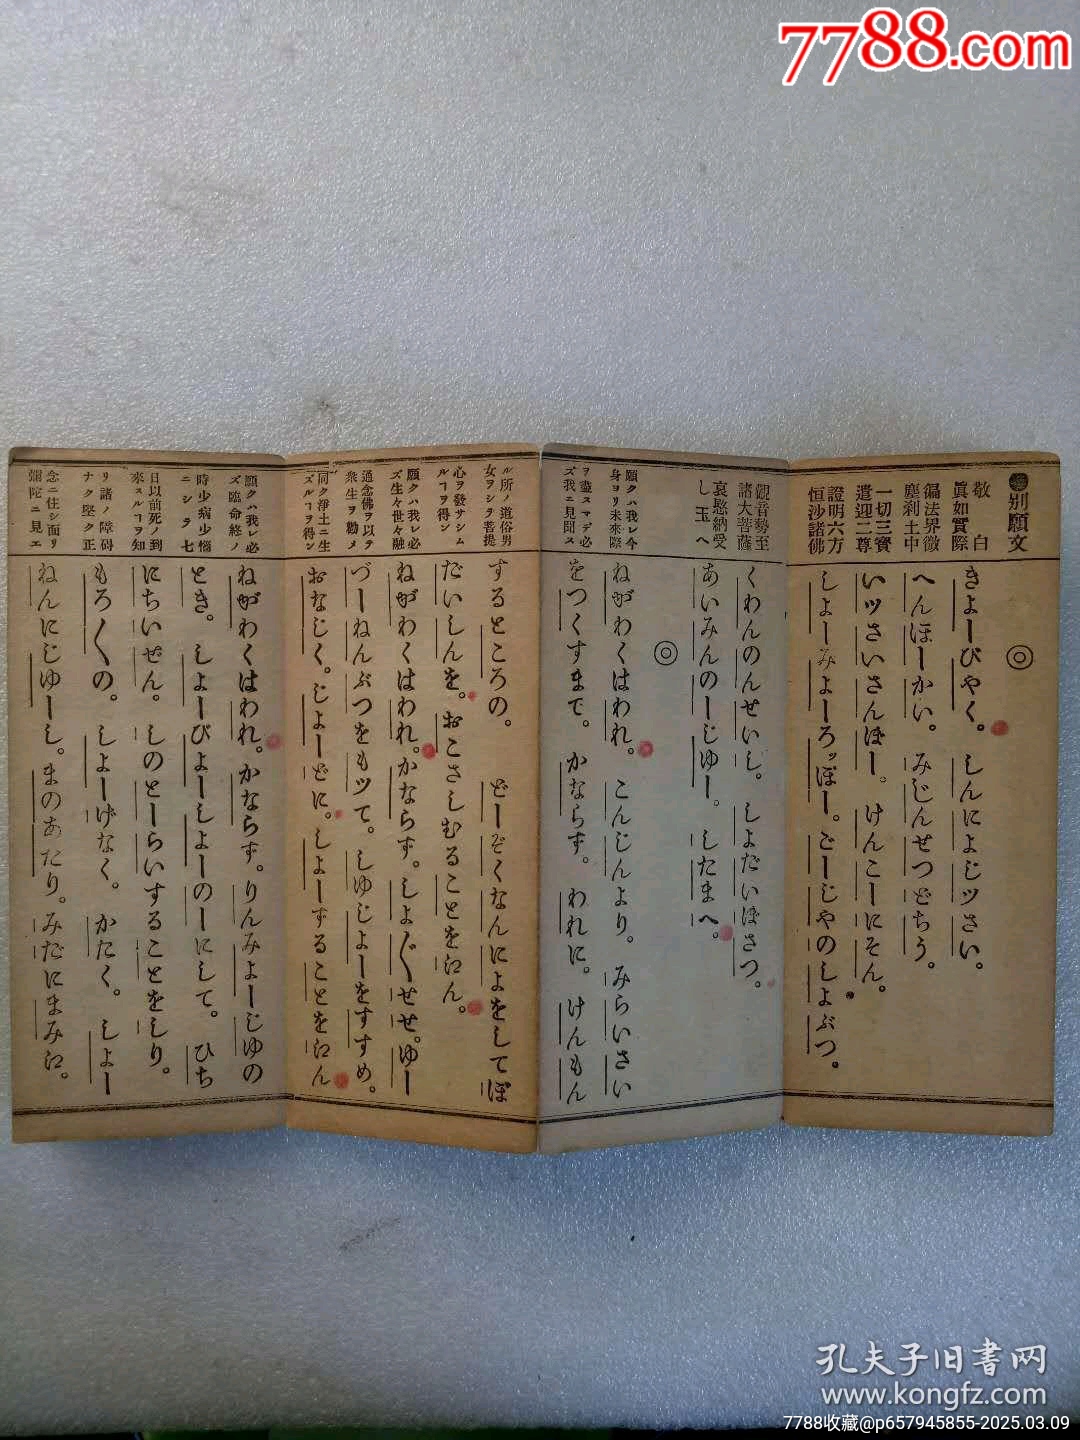 7788.com
別願文
敬白
眞如實際
徧法界微
塵刹土中
一切三寳
遣迎二尊
證明六方
恒沙諸佛
きよーびやく。しんによじツさい。
へんほーかい。みじんせつどちう。
いツさいさんぼー。けんこーにそん。
しよーみよーろッぽー。ごーじやのしよぶつ。
觀音勢至
諸大菩薩
哀愍納受
し玉へ
くわんのんせいし。しよだいぼさつ。
あいみんのーじゆー。したまへ。
願クハ我レ今
身ヨリ未來際
ヲ盡スマデ必
ズ我ニ見聞ス
ねがわくはわれ。こんじんより。みらいさい
をつくすまで。かならず。われに。けんもん
ル所ノ道俗男
女ヲシラ菩提
心ヲ發サシム
ルヿヲ得ン
願クハ我レ必
ズ生々世々融
通念佛ヲ以テ
衆生ヲ勸メ
同ク淨土ニ生
ズルヿヲ得ン
するところの。どーぞくなんによをしてぼ
だいしんを。おこさしむることをゑん。
ねがわくはわれ。かならず。しよ〳〵せせ。ゆー
づーねんぶつをもツて。しゆじよーをすすめ。
おなじく。じよーどに。しよーずることをゑん
願クハ我レ必
ズ臨命終ノ
時少病少惱
ニシラ七
日以前死ノ到
來スルヿヲ知
リ諸ノ障碍
ナク堅ク正
念ニ住シ面リ
彌陀ニ見エ
ねがわくはわれ。かならず。りんみよーじゆの
とき。しよーびよーしよーのーにして。ひち
にちいぜん。しのとーらいすることをしり。
もろ〳〵の。しよーげなく。かたく。しよー
ねんにじゆーし。まのあたり。みだにまみゑ。
孔夫子旧書网
www.kongfz.com
7788收藏@p657945855-2025.03.09